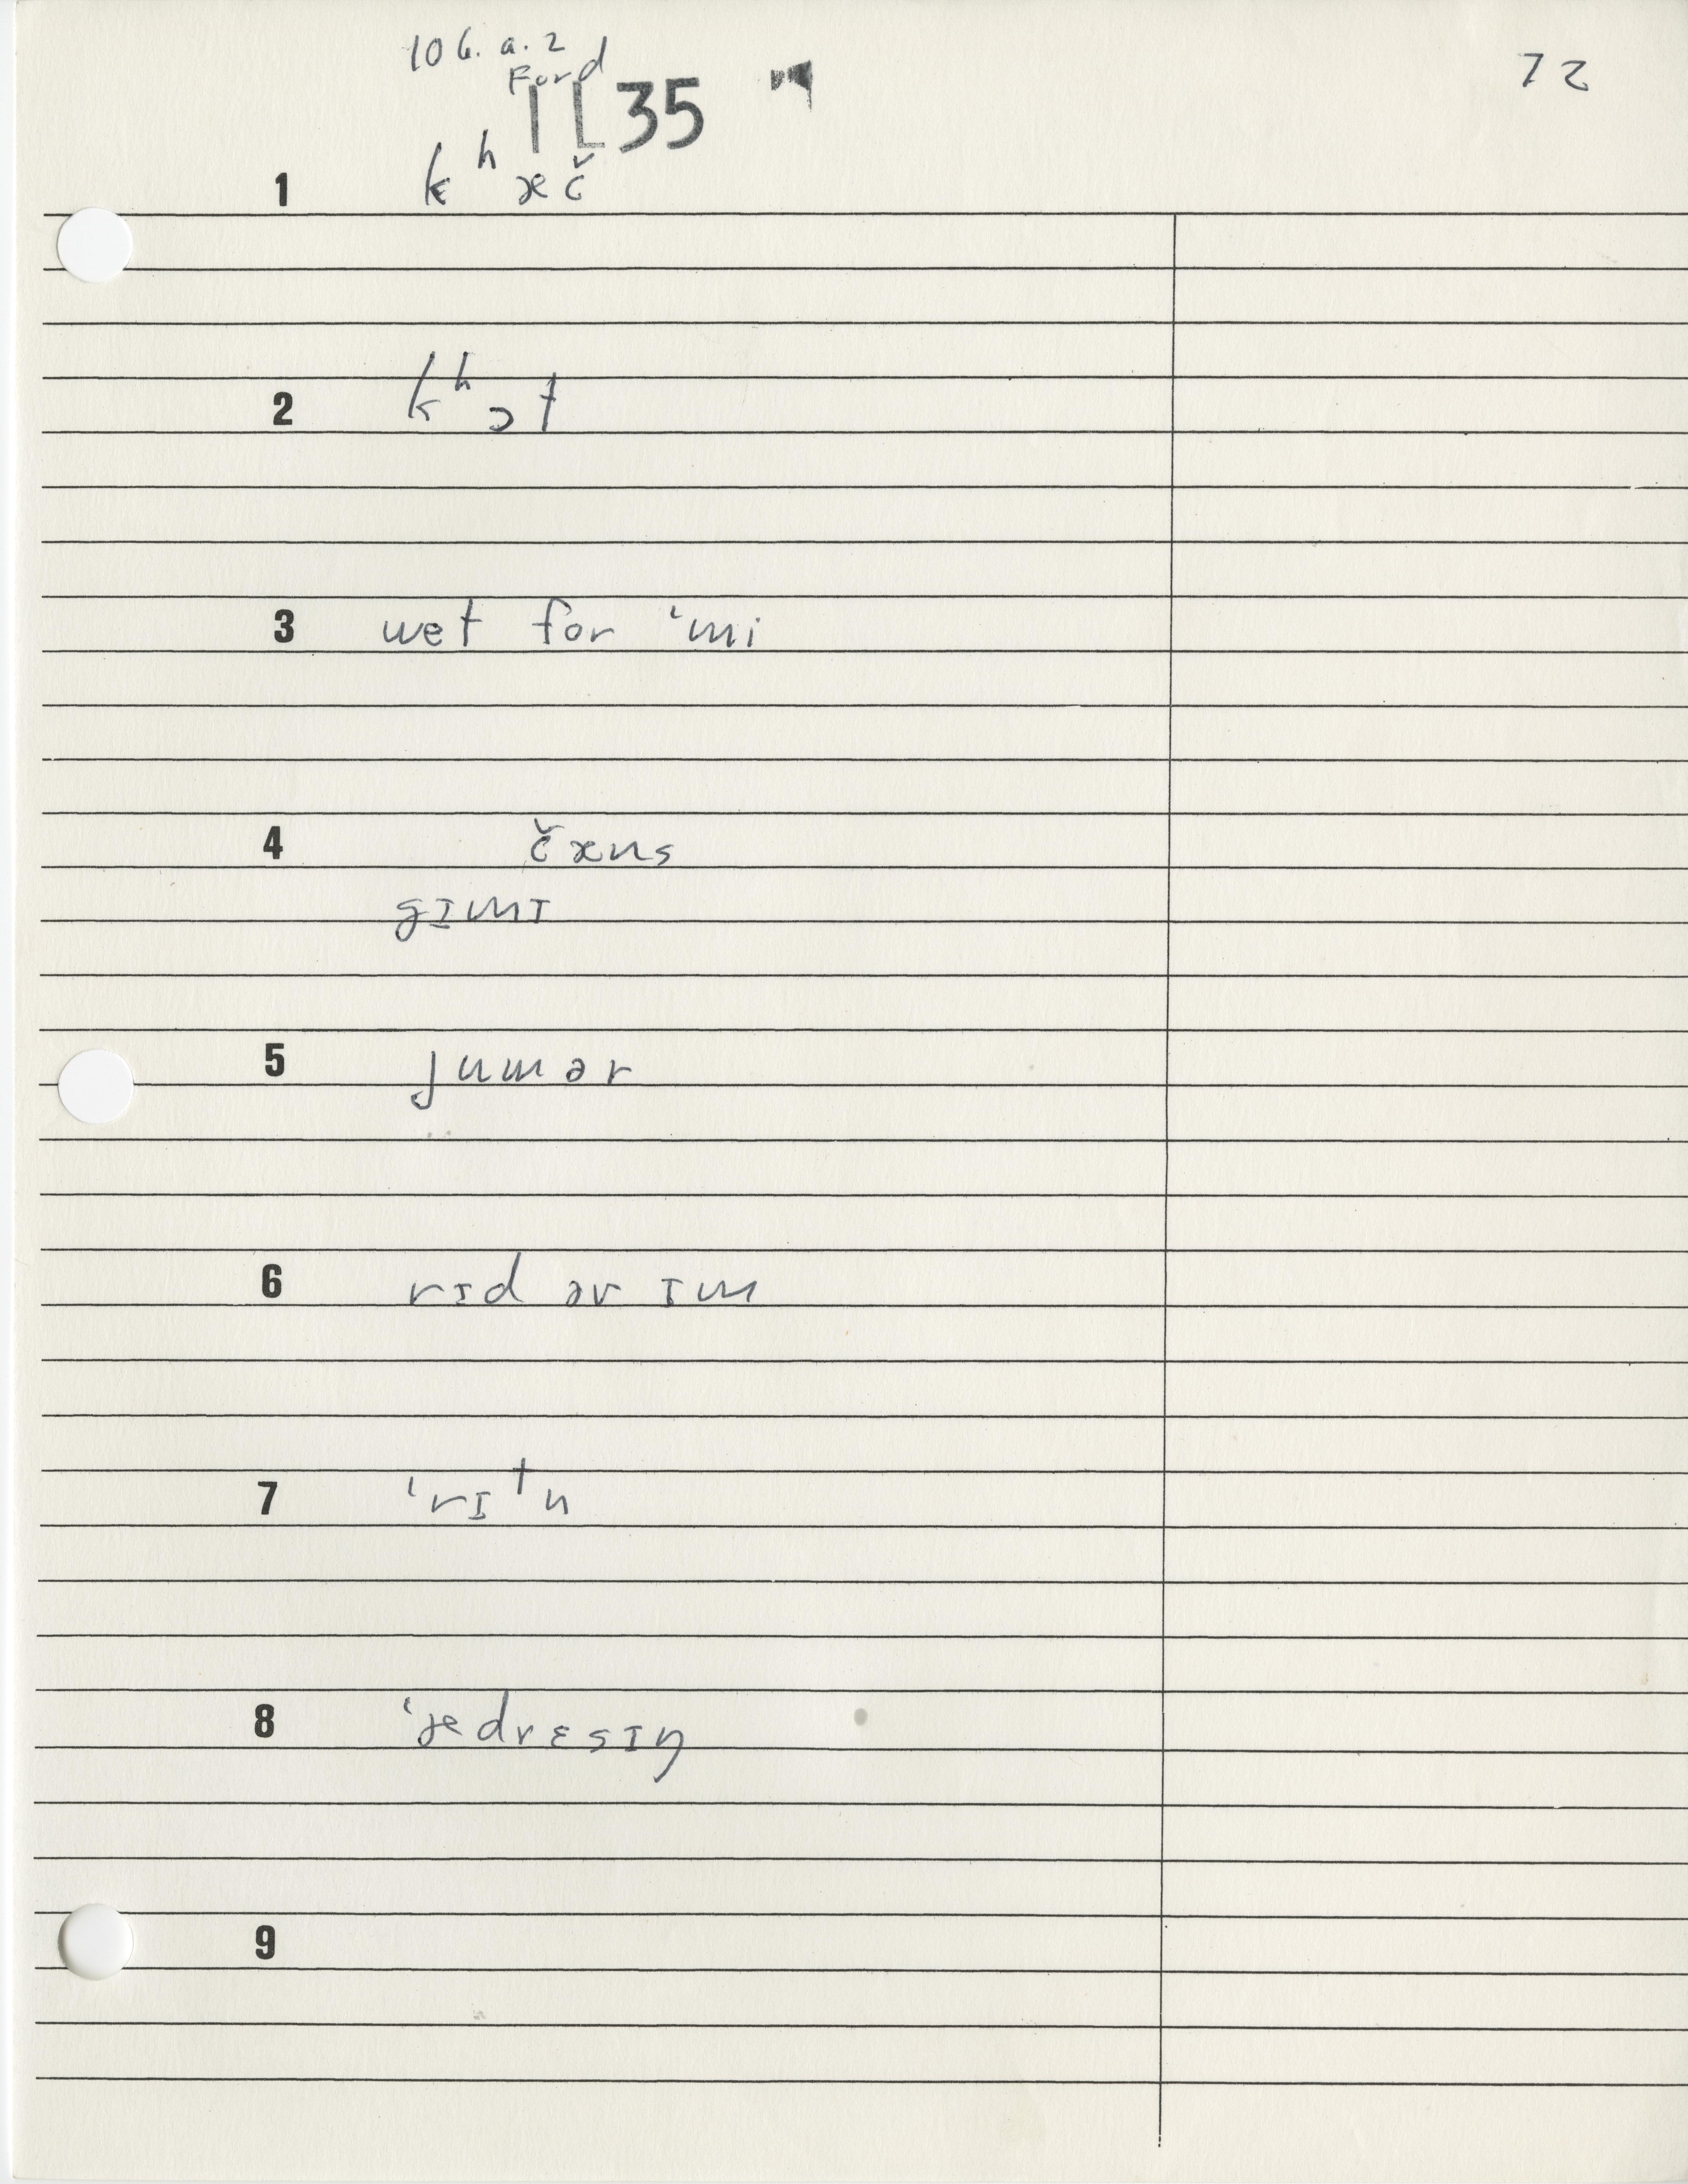 106.a.2
Ford
TL35
72
1 kʰæč
2 kʰɔt
3 wet for ʻmi
4 čæns
gɪmɪ
5 ǰumər
6 rɪd əv ɪm
7 ʻrɪᵗn
8 ʻædrɛsɪŋ
9